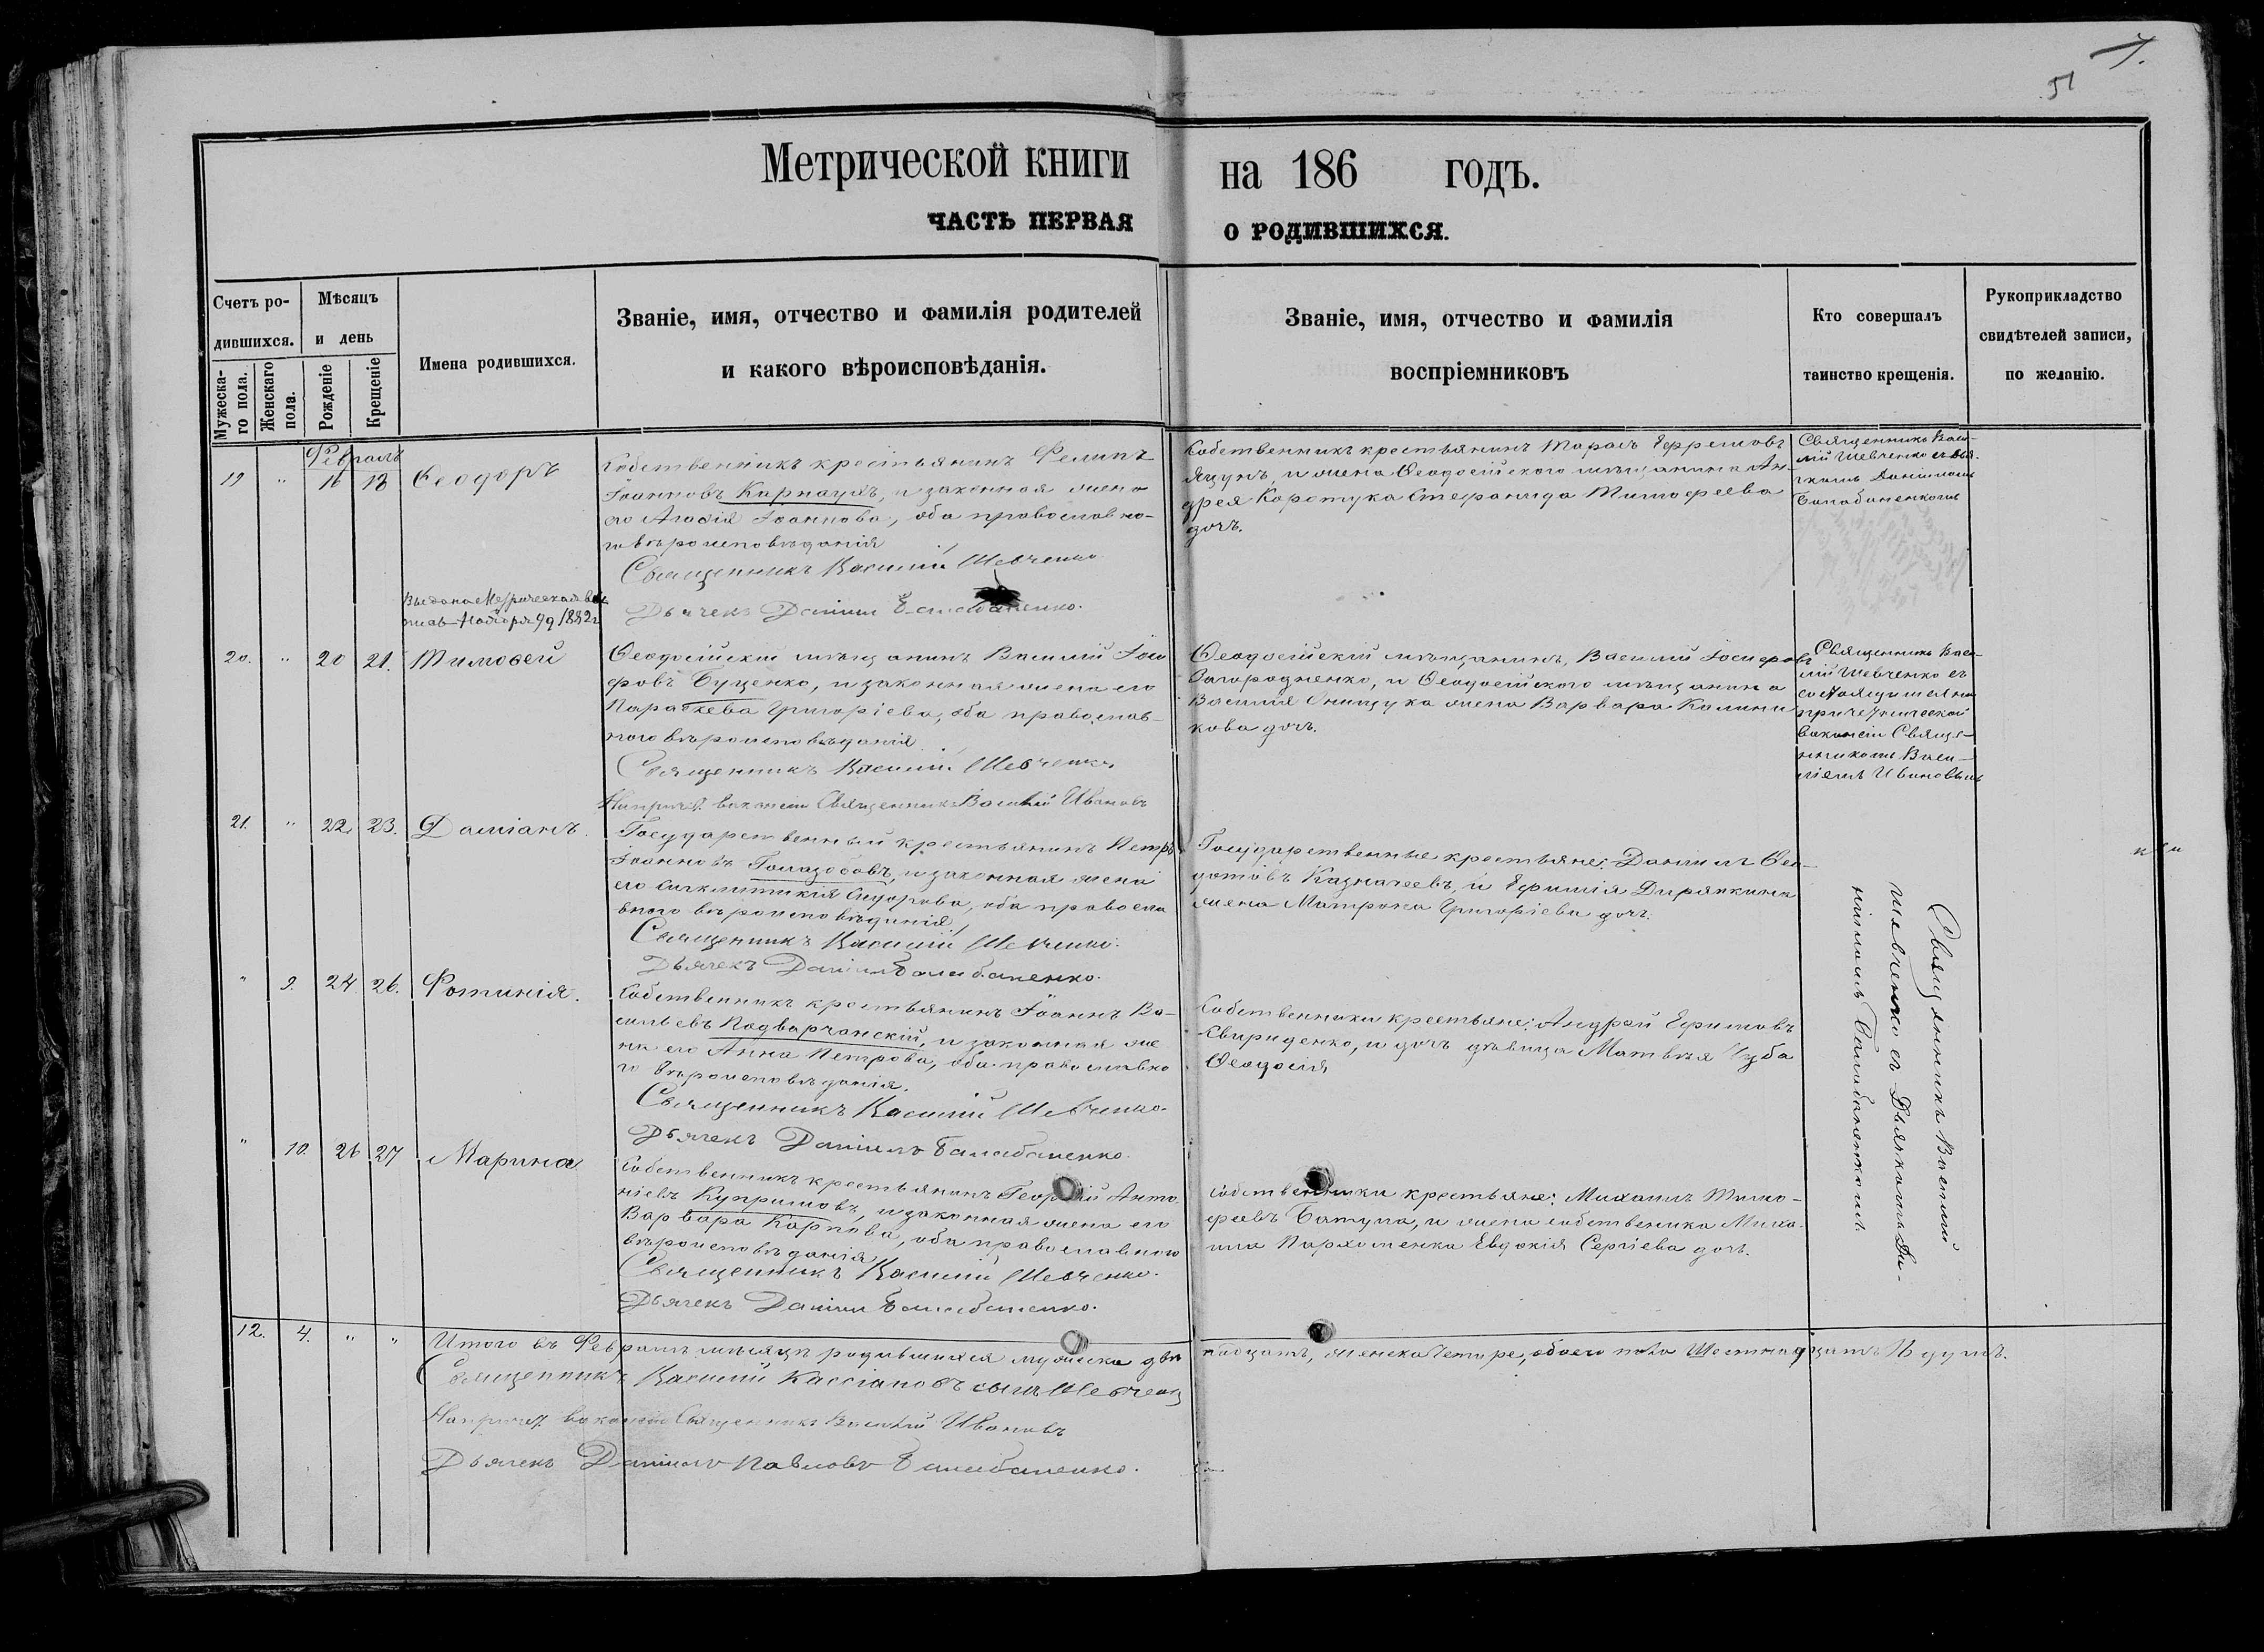 7.
51
Метрической книги на 186 годъ.
ЧАСТЬ ПЕРВАЯ О РОДИВШИХСЯ.
Счетъ ро-
дившихся.
Мужеска-
го пола.
Женскаго
пола.
Мѣсяцъ
и день
Рожденіе
Крещеніе
Имена родившихся.
Званіе, имя, отчество и фамилія родителей
и какого вѣроисповѣданія.
Званіе, имя, отчество и фамилія
воспріемниковъ
Кто совершалъ
таинство крещенія.
Рукоприкладство
свидѣтелей записи,
по желанію.
Февраль
19 " 16 18 Ѳеодоръ
Собственникъ крестьянинъ Филипъ
Іоанновъ Карнаухъ, и законная жена
его Агафія Іоаннова, оба православна-
го вѣроисповѣданія
Священникъ Василій Шевченко
Дьячекъ Даніилъ Балабаненко.
Собственникъ крестьянинъ Тарасъ Ефремовъ
Яцунъ, и жена Ѳеодосійского мѣщанина Ан-
дрея Коротука Стефанида Тимофеева
дочь.
Священникъ Васи-
лій Шевченко съ дья-
чкомъ Даніиломъ
Балабаненкомъ
Выдана Метрическая вы
пись Ноября 9 д 1882 г
20. " 20 21. Тимоѳей
Ѳеодосійскій мѣщанинъ Василій Іоси
фовъ Буценко, и законная жена его
Параскева Григоріева, оба православ-
ного вѣроисповѣданія
Священникъ Василій Шевченко
На прич. ваканcіи Священникъ Василій Ивановъ
Ѳеодосійскій мѣщанинъ, Василій Іосифовъ
Загородненко, и Ѳеодосійского мѣщанина
Василія Онищука жена Варвара Калини
кова дочь.
Священникъ Васи-
лій Шевченко съ
состоящимъ на
причетнической
вакансіи Свяще-
нникомъ Васи-
ліемъ Ивановымъ
21. " 22. 23. Даміанъ
Государственный крестьянинъ Петръ
Іоанновъ Голазобовъ, и законная жена
его Сигклитикія Сидорова, оба правосла
вного вѣроисповѣданія
Священникъ Василій Шевченко.
Дьячекъ Даніилъ Балабаненко.
Государственные крестьяне: Даніилъ Ѳео-
дотовъ Казначеевъ, и Ефимія Дирявкина
жена Матрона Григоріева дочь.
" 9. 24. 26. Фотинія.
Собственникъ крестьянинъ Іоаннъ Ва-
сильевъ Подварчанскій, и законная же
на его Анна Петрова, оба православно
го вѣроисповѣданія.
Священникъ Василій Шевченко.
Дьячекъ Даніилъ Балабаненко.
Собственники крестьяне: Андрей Ефимовъ
Свириденко, и дочь дѣвица Матвѣя Чуба
Ѳеодосія
Священникъ Василій
Шевченко съ Дьячкомъ Да-
ніиломъ Балабаненкомъ
" 10. 26 27 Марина
Собственникъ крестьянинъ Георгій Анто
ніевъ Купріяновъ, и законная жена его
Варвара Карпова, оба православного
вѣроисповѣданія
Священникъ Василій Шевченко.
Дьячекъ Даніилъ Балабаненко.
Собственники крестьяне: Михаилъ Тимо-
феевъ Батула, и жена собственника Миха
ила Пархоменка Евдокія Сергіева дочь.
12. 4. " " Итого въ Февралѣ мѣсяцѣ родившихся мужеска две
надцать, женска Четыре, обоего пола Шестнадцать 16 душъ.
Священникъ Василій Кассіановъ сынъ Шевченко
На причет. вакансіи Священникъ Василій Ивановъ
Дьячекъ Даніилъ Павловъ Балабаненко.